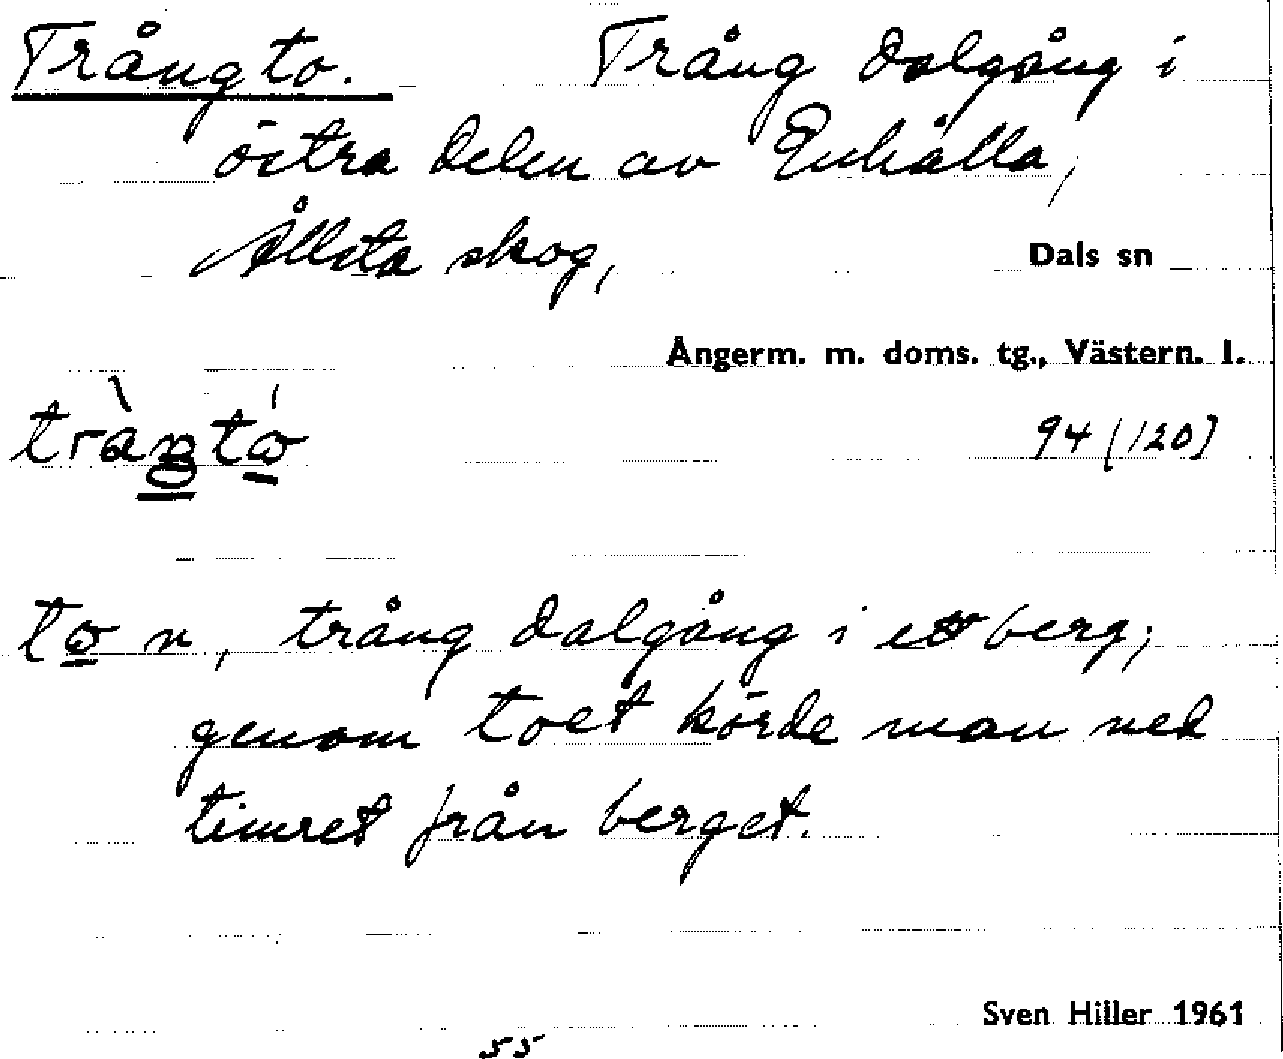 Trångto. Trång dalgång i
östra delen av Enhälla,
Ållsta skog, Dals sn
Ångerm. m. doms. tg., Västern. l.
94 (120)
to n, trång dalgång i ett berg;
genom toet körde man ned
timret från berget.
Sven Hiller 1961
55